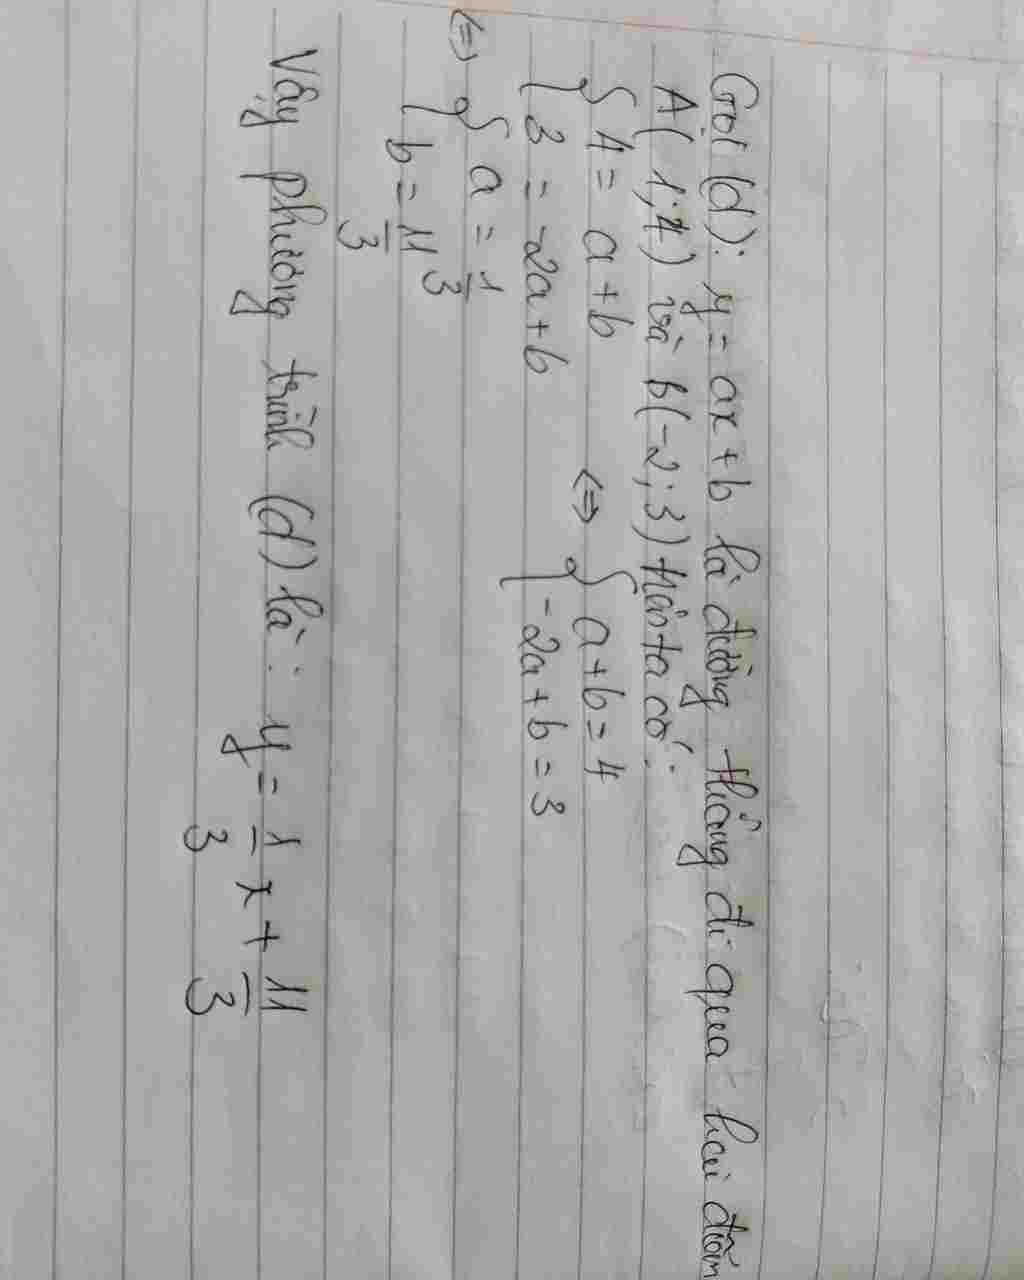 Gọi (d): y = ax + b là đường thẳng đi qua hai điểm
A(1;4) và B(-2;3) nên ta có:
{ 4 = a + b <=> { a + b = 4
{ 3 = -2a + b { -2a + b = 3
<=> { a = 1/3
{ b = 11/3
Vậy phương trình (d) là: y = 1/3 x + 11/3